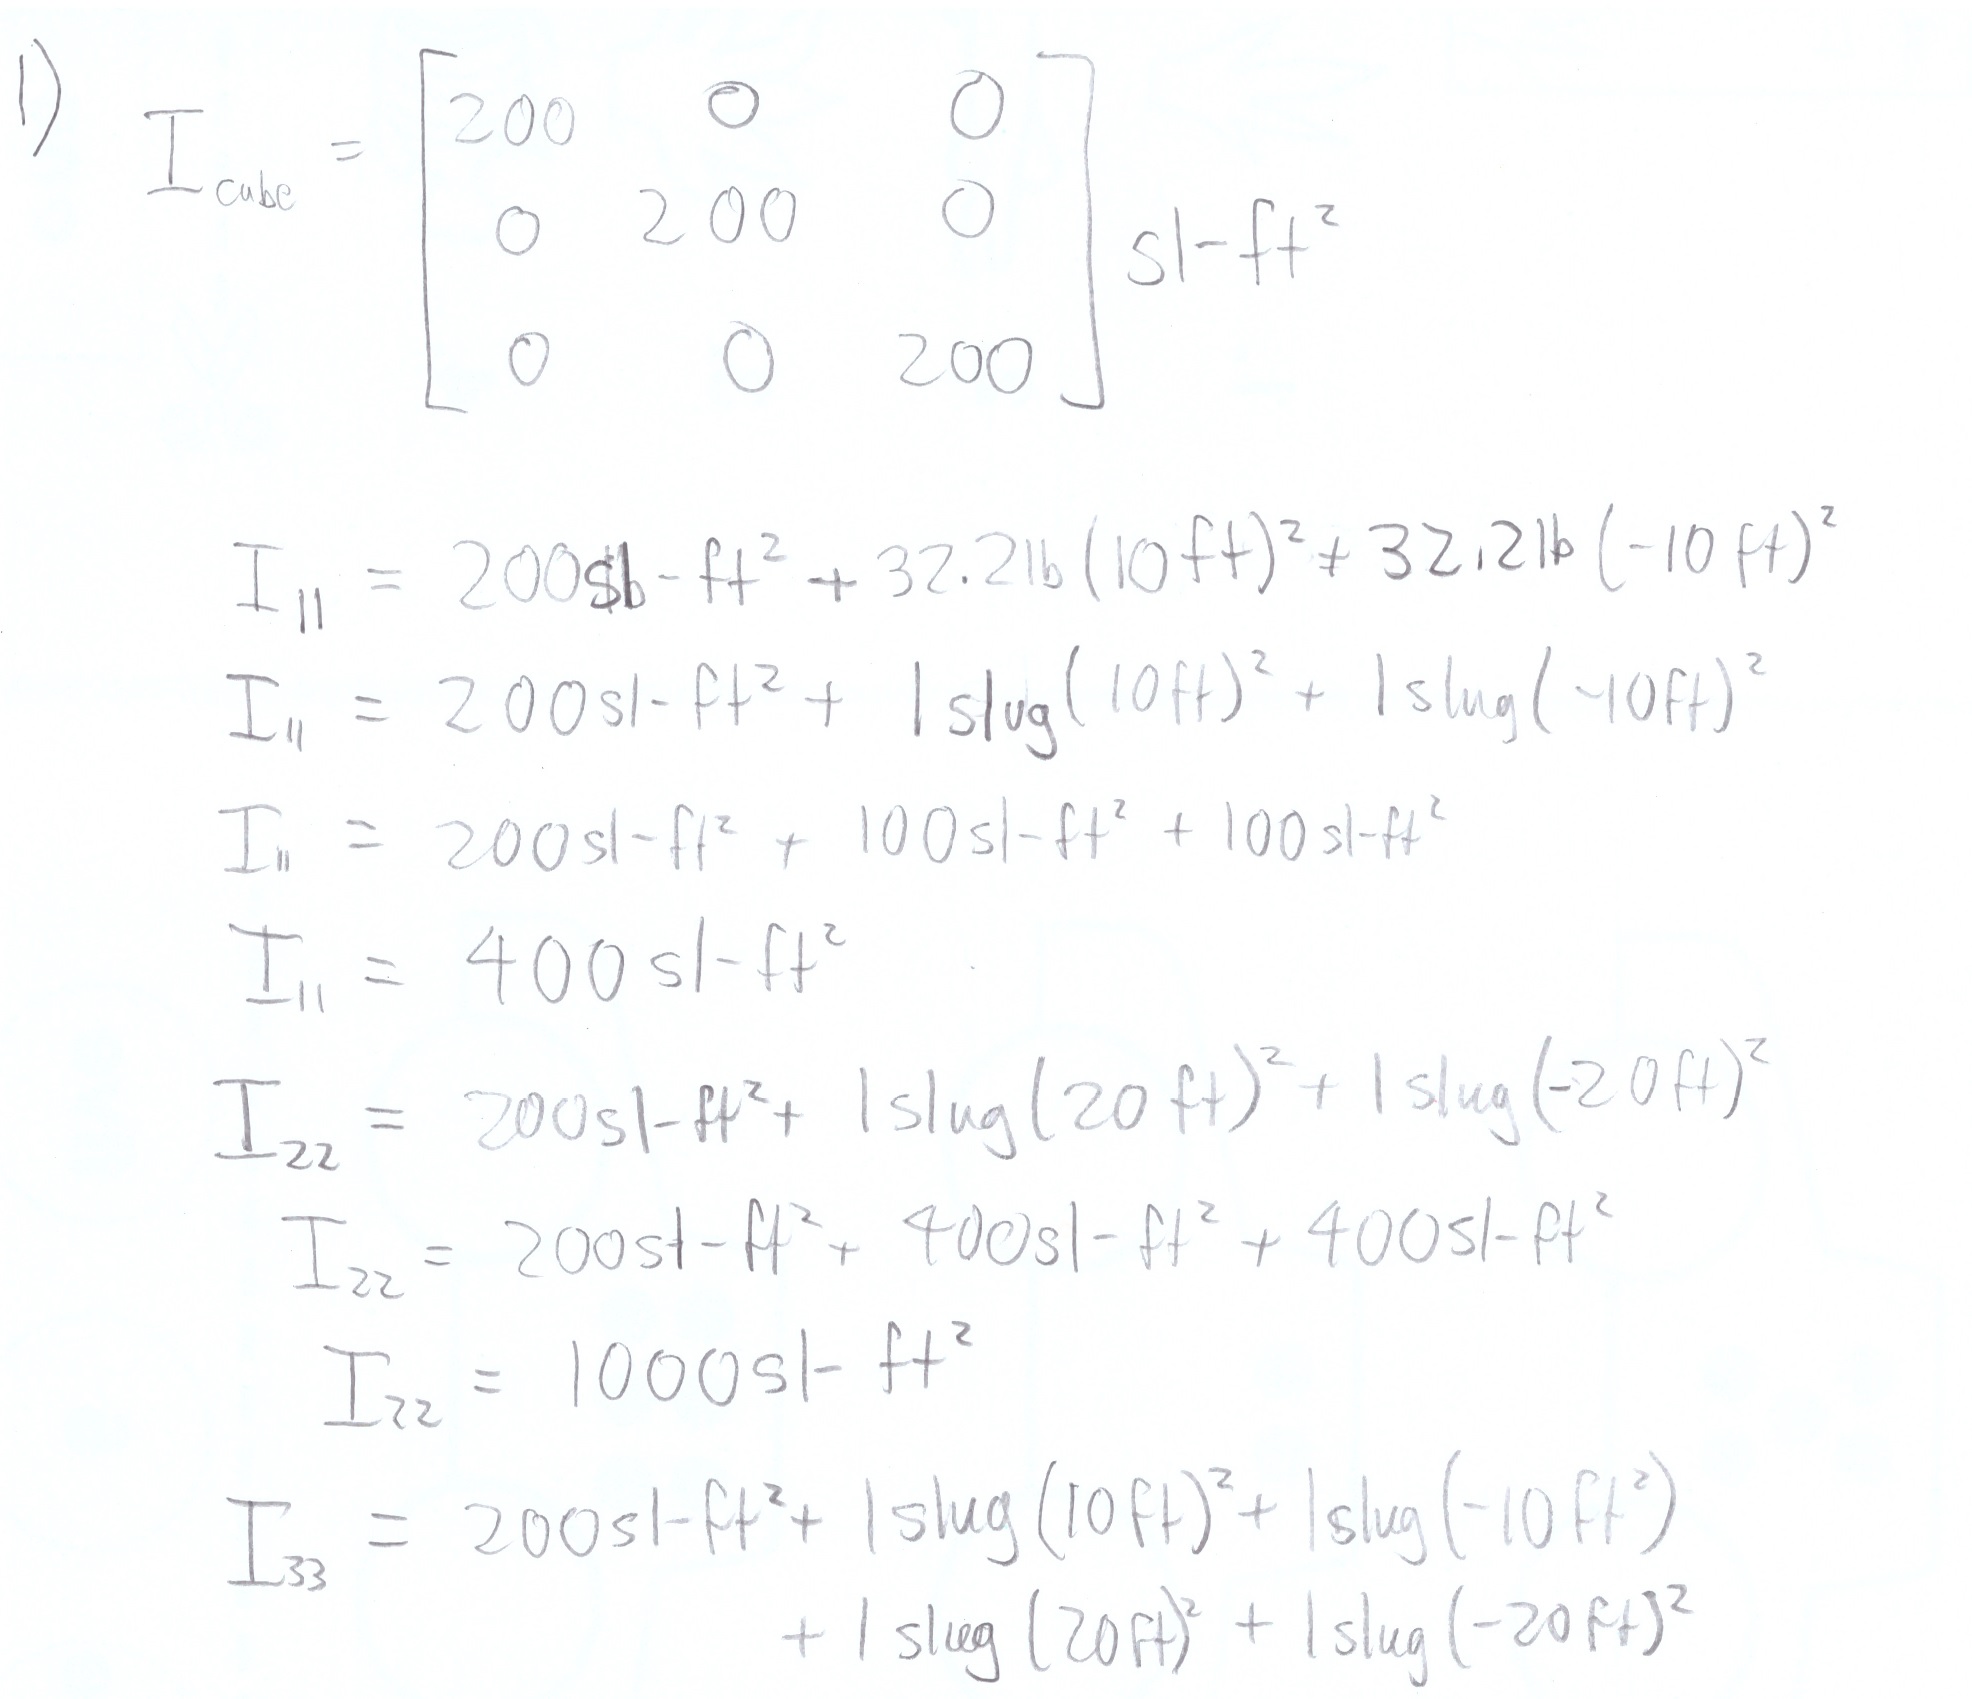 1)
I_cube = [200 0 0
0 200 0
0 0 200] sl-ft²
I₁₁ = 200 -ft² + 32.2lb (10ft)² + 32.2lb (-10ft)²
I₁₁ = 200sl-ft² + 1slug(10ft)² + 1slug(-10ft)²
I₁₁ = 200sl-ft² + 100sl-ft² + 100sl-ft²
I₁₁ = 400sl-ft²
I₂₂ = 200sl-ft² + 1slug(20ft)² + 1slug(-20ft)²
I₂₂ = 200sl-ft² + 400sl-ft² + 400sl-ft²
I₂₂ = 1000sl-ft²
I₃₃ = 200sl-ft² + 1slug(10ft)² + 1slug(-10ft²)
+ 1slug(20ft)² + 1slug(-20ft)²